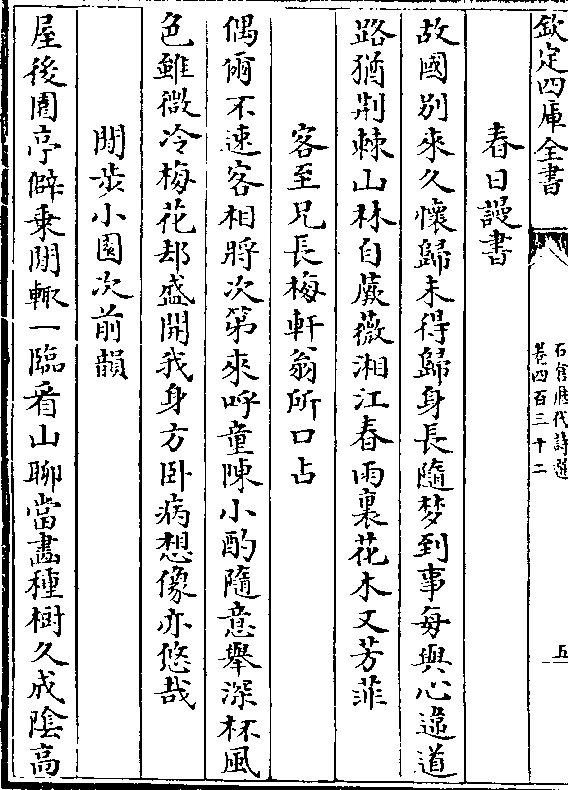 欽定四庫全書
石倉歷代詩選
卷四百三十二
五
春日謾書
故國别來久懷歸未得歸身長隨梦到事每與心違道
路猶荆棘山林自蕨薇湘江春雨裏花木又芳菲
客至兄長梅軒翁所口占
偶爾不速客相將次第來呼童陳小酌隨意舉深杯風
色雖微冷梅花却盛開我身方卧病想像亦悠哉
閒步小園次前韻
屋後園亭僻乗閒輙一臨看山聊當畫種樹久成隂高